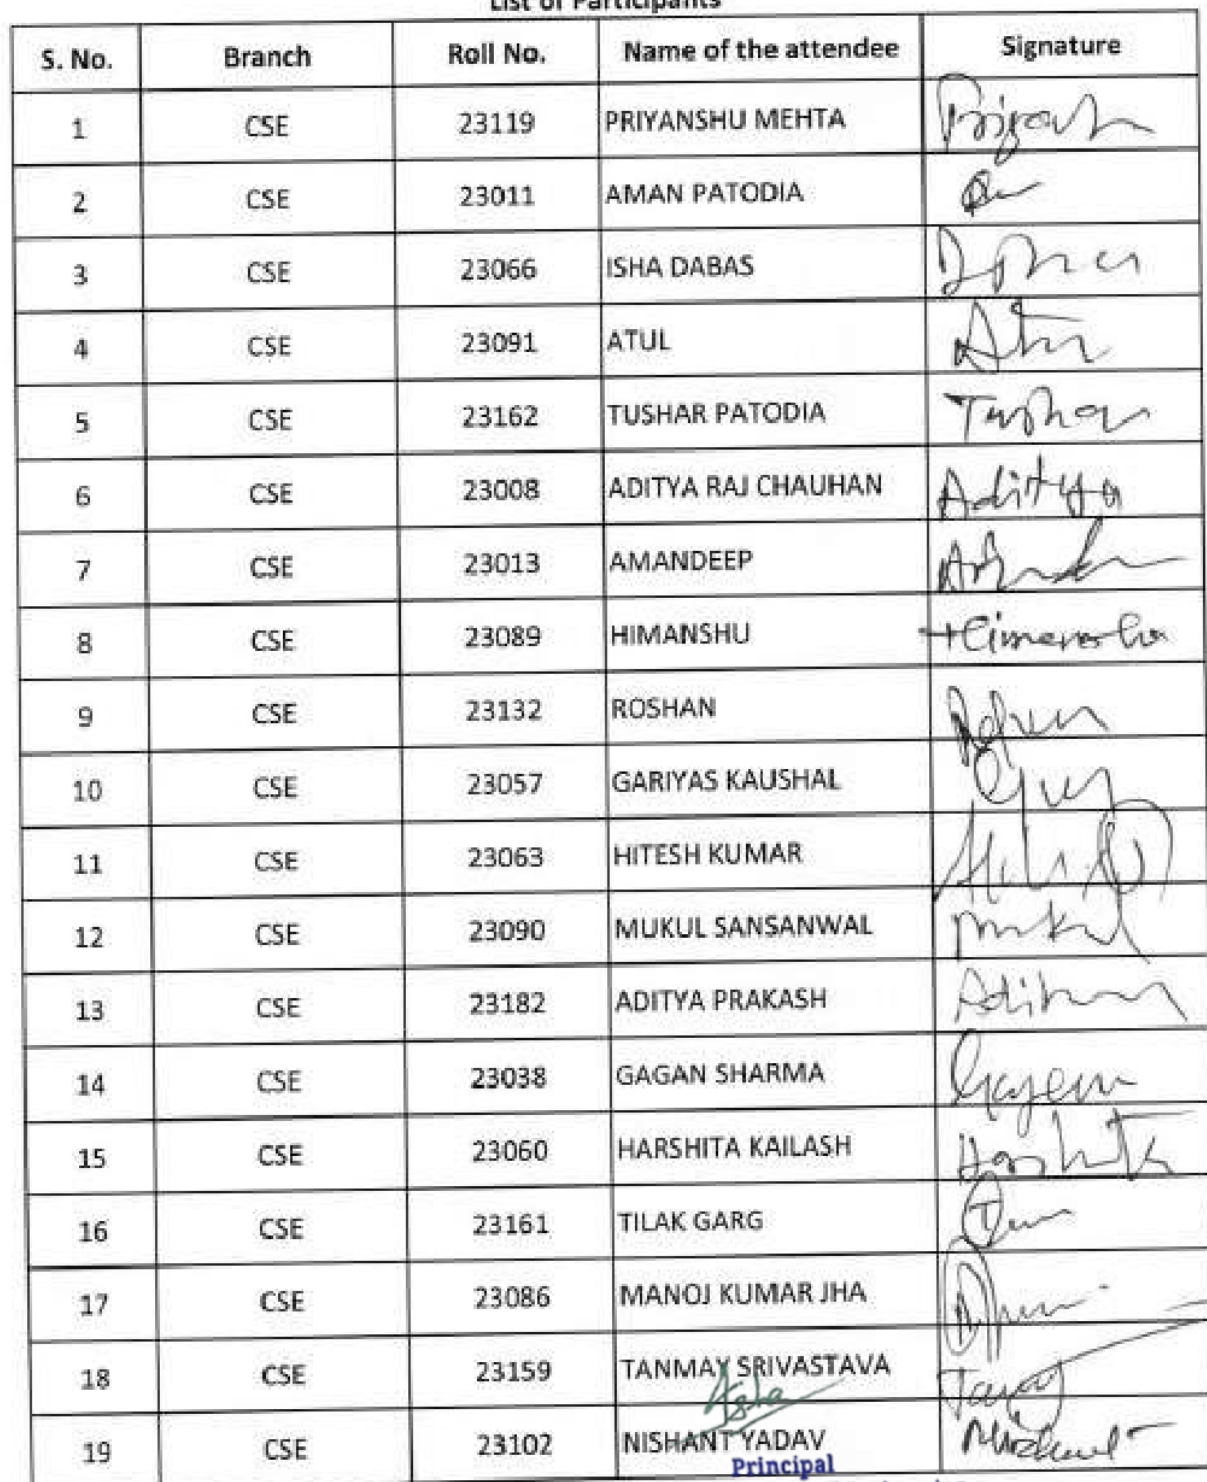 List of Participants
S. No. Branch Roll No. Name of the attendee Signature
1 CSE 23119 PRIYANSHU MEHTA
2 CSE 23011 AMAN PATODIA
3 CSE 23066 ISHA DABAS
4 CSE 23091 ATUL
5 CSE 23162 TUSHAR PATODIA Tushar
6 CSE 23008 ADITYA RAJ CHAUHAN Aditya
7 CSE 23013 AMANDEEP
8 CSE 23089 HIMANSHU Himanshu
9 CSE 23132 ROSHAN
10 CSE 23057 GARIYAS KAUSHAL
11 CSE 23063 HITESH KUMAR
12 CSE 23090 MUKUL SANSANWAL Mukul
13 CSE 23182 ADITYA PRAKASH
14 CSE 23038 GAGAN SHARMA
15 CSE 23060 HARSHITA KAILASH
16 CSE 23161 TILAK GARG
17 CSE 23086 MANOJ KUMAR JHA
18 CSE 23159 TANMAY SRIVASTAVA
Asha
19 CSE 23102 NISHANT YADAV
Principal